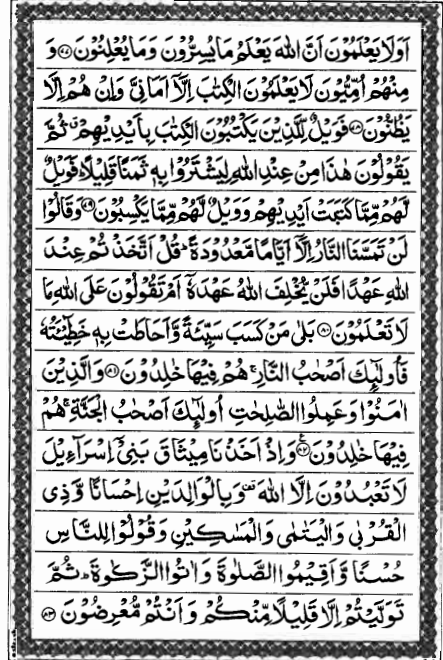 اَوَلَا يَعْلَمُوْنَ اَنَّ اللّٰهَ يَعْلَمُ مَا يُسِرُّوْنَ وَمَا يُعْلِنُوْنَ ﴿۷۷﴾ وَ
مِنْهُمْ اُمِّيُّوْنَ لَا يَعْلَمُوْنَ الْكِتٰبَ اِلَّاۤ اَمَانِىَّ وَاِنْ هُمْ اِلَّا
يَظُنُّوْنَ ﴿۷۸﴾ فَوَيْلٌ لِّلَّذِيْنَ يَكْتُبُوْنَ الْكِتٰبَ بِاَيْدِيْهِمْ ۗ ثُمَّ
يَقُوْلُوْنَ هٰذَا مِنْ عِنْدِ اللّٰهِ لِيَشْتَرُوْا بِهٖ ثَمَنًا قَلِيْلًا ؕ فَوَيْلٌ
لَّهُمْ مِّمَّا كَتَبَتْ اَيْدِيْهِمْ وَوَيْلٌ لَّهُمْ مِّمَّا يَكْسِبُوْنَ ﴿۷۹﴾ وَقَالُوْا
لَنْ تَمَسَّنَا النَّارُ اِلَّاۤ اَيَّامًا مَّعْدُوْدَةً ؕ قُلْ اَتَّخَذْتُمْ عِنْدَ
اللّٰهِ عَهْدًا فَلَنْ يُّخْلِفَ اللّٰهُ عَهْدَهٗۤ اَمْ تَقُوْلُوْنَ عَلَى اللّٰهِ مَا
لَا تَعْلَمُوْنَ ﴿۸۰﴾ بَلٰى مَنْ كَسَبَ سَيِّئَةً وَّاَحَاطَتْ بِهٖ خَطِيْۤئَتُهٗ
فَاُولٰٓئِكَ اَصْحٰبُ النَّارِ ۚ هُمْ فِيْهَا خٰلِدُوْنَ ﴿۸۱﴾ وَالَّذِيْنَ
اٰمَنُوْا وَعَمِلُوا الصّٰلِحٰتِ اُولٰٓئِكَ اَصْحٰبُ الْجَنَّةِ ۚ هُمْ
فِيْهَا خٰلِدُوْنَ ﴿۸۲﴾ وَاِذْ اَخَذْنَا مِيْثَاقَ بَنِىْۤ اِسْرَآءِيْلَ
لَا تَعْبُدُوْنَ اِلَّا اللّٰهَ ۗ وَبِالْوَالِدَيْنِ اِحْسَانًا وَّذِى
الْقُرْبٰى وَالْيَتٰمٰى وَالْمَسٰكِيْنِ وَقُوْلُوْا لِلنَّاسِ
حُسْنًا وَّاَقِيْمُوا الصَّلٰوةَ وَاٰتُوا الزَّكٰوةَ ؕ ثُمَّ
تَوَلَّيْتُمْ اِلَّا قَلِيْلًا مِّنْكُمْ وَاَنْتُمْ مُّعْرِضُوْنَ ﴿۸۳﴾